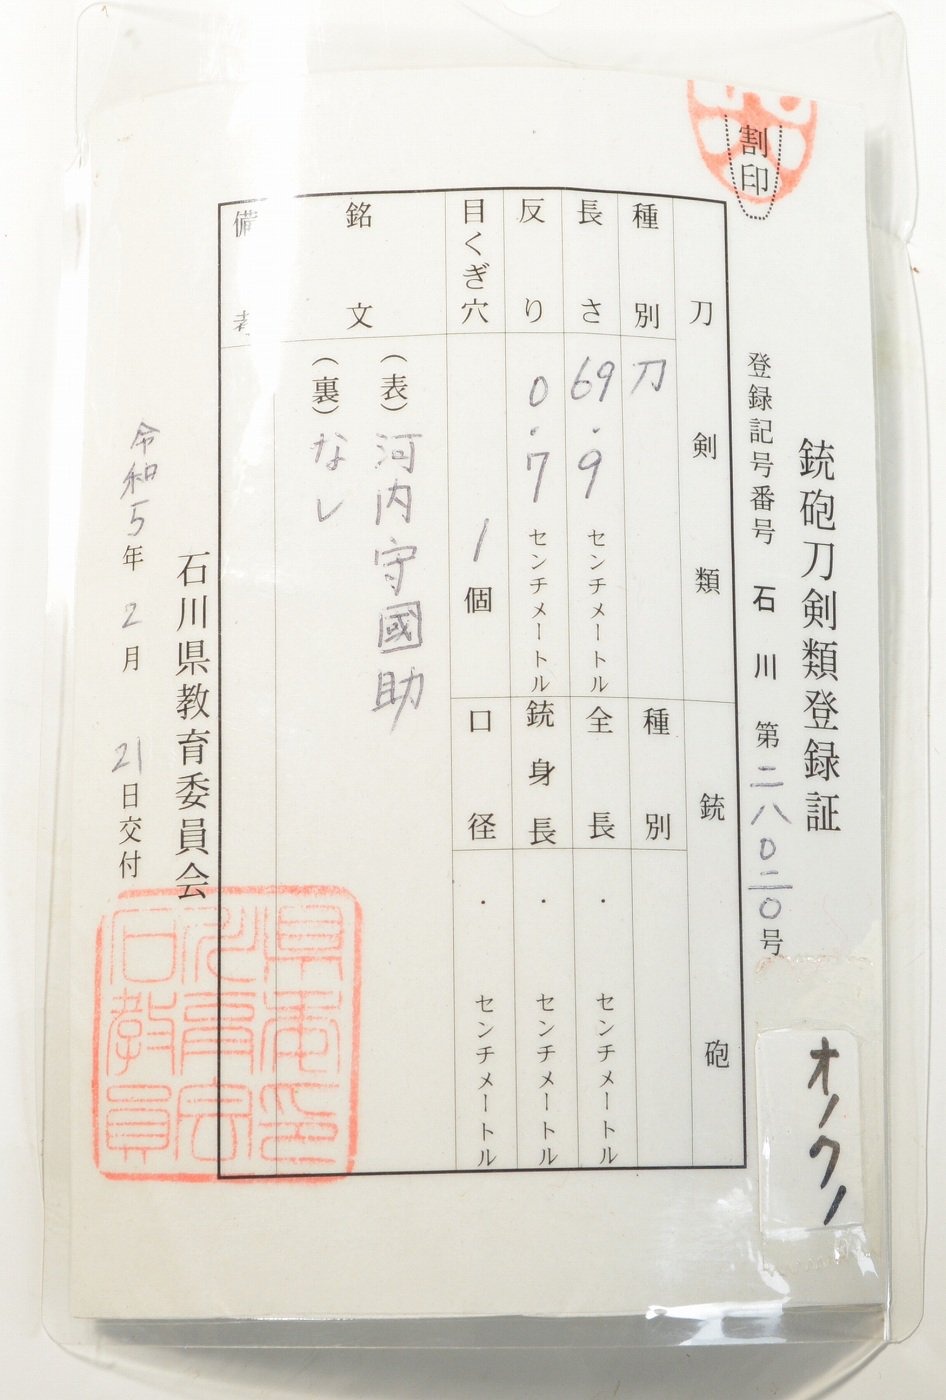 割印
銃砲刀剣類登録証
登録記号番号 石川 第二八〇二〇号
刀剣類
種別 刀
長さ 69.9 センチメートル
反り 0.7 センチメートル
目くぎ穴 1個
銘文
(表)河内守國助
(裏)なし
備考
銃砲
種別
全長 ． センチメートル
銃身長 ． センチメートル
口径 ． センチメートル
石川県教育委員会
令和5年2月21日交付
県委印
川育会
石教員